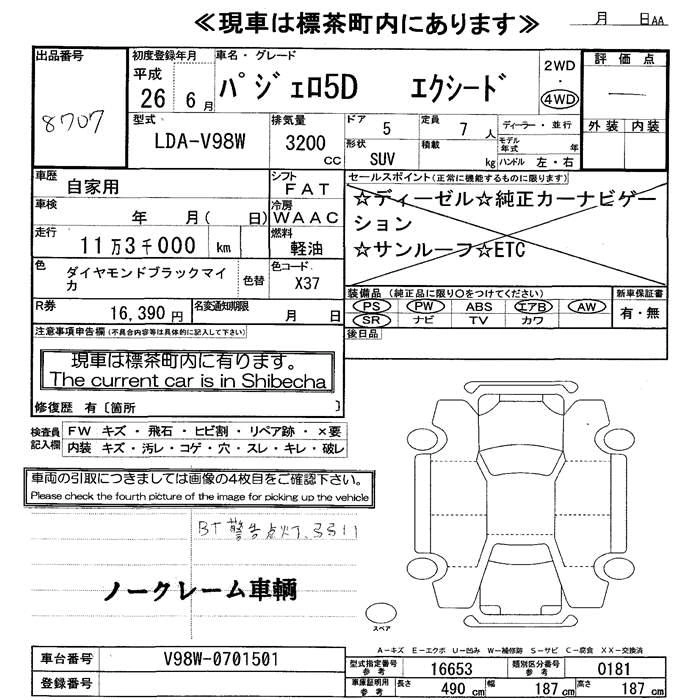 ≪現車は標茶町内にあります≫
月 日AA
出品番号 8707
初度登録年月 平成 26 6月
車名・グレード パジェロ5D エクシード
2WD・4WD
評価点 —
外装 内装
型式 LDA-V98W
排気量 3200 CC
ドア 5
定員 7人
ディーラー・並行
モデル年式 年
形状 SUV
積載 kg
ハンドル 左・右
車歴 自家用
シフト FAT
セールスポイント(正常に機能するものに限ります)
☆ディーゼル☆純正カーナビゲーション
☆サンルーフ☆ETC
車検 年 月( 日)
冷房 WAAC
走行 11万3千000 km
燃料 軽油
色 ダイヤモンドブラックマイカ
色替
色コード X37
装備品(純正品に限り○をつけてください)
PS PW ABS エアB AW
SR ナビ TV カワ
新車保証書 有・無
R券 16,390円
名変通知期限 月 日
後日品
注意事項申告欄(不具合内容等は具体的に記入して下さい)
現車は標茶町内に有ります。
The current car is in Shibecha
修復歴 有〔箇所 〕
検査員記入欄
FW キズ・飛石・ヒビ割・リペア跡・×要
内装 キズ・汚レ・コゲ・穴・スレ・キレ・破レ
車両の引取につきましては画像の4枚目をご確認下さい。
Please check the fourth picture of the image for picking up the vehicle
BT警告点灯
ノークレーム車輌
スペア
A-キズ E-エクボ U-凹み W-補修跡 S-サビ C-腐食 XX-交換済
車台番号 V98W-0701501
登録番号
型式指定番号参考 16653
類別区分番号参考 0181
車庫証明用参考 長さ 490 cm 幅 187 cm 高さ 187 cm